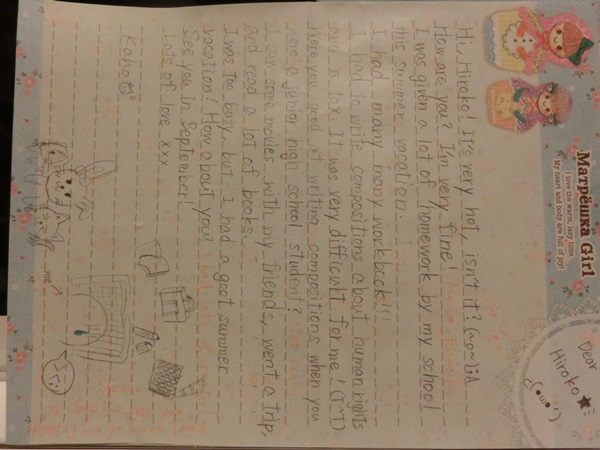 Матрёшка Girl
I love the warm, lazy time
My heart and body are full of joy!
Dear
Hiroko★
Hi, Hiroko! It's very hot, isn't it? (~o~);A
How are you? I'm very fine!
I was given a lot of homework by my school
this summer vacation.
I had many many workbook!!!
I had to write compositions about human rights
and a tax. It was very difficult for me! (T^T)
Were you good at writing compositions when you
were a junior high school student?
I saw some movies with my friends, went a trip,
and read a lot of books.
I was too busy but I had a goot summer
vacation! How about you?
See you in September!
Lots of love xxx
Kaho
me